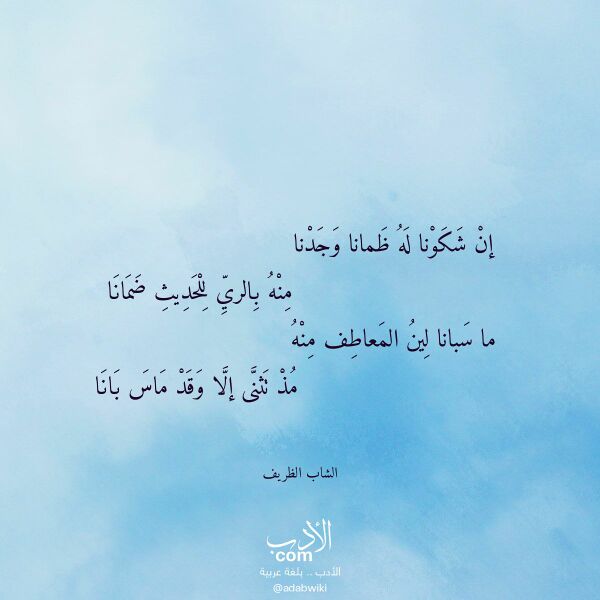 إنْ شَكَوْنا لَهُ ظَمانا وَجَدْنا
مِنْهُ بِالريِّ لِلْحَدِيثِ ضَمَانَا
ما سَبانا لِينُ المَعاطِف مِنْهُ
مُذْ تَثنَّى إلَّا وَقَدْ مَاسَ بَانَا
الشاب الظريف
الأدب
com
الأدب .. بلغة عربية
@adabwiki